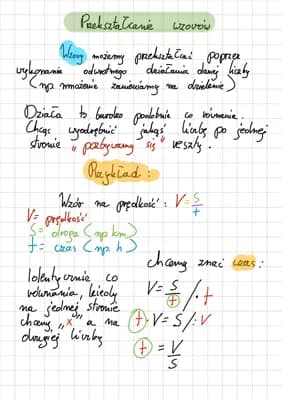 Przekształcanie wzorów
Wzory możemy przekształcać poprzez
wykonanie odwrotnego działania danej liczby
(np. mnożenie zamieniamy na dzielenie)
Działa to bardzo podobnie co równanie.
Chcąc wyodrębnić jakąś liczbę po jednej
stronie "pozbywamy się" reszty.
Przykład:
Wzór na prędkość: V = S/t
V = prędkość
S = droga (np km)
t = czas (np h)
chcemy znać czas:
Identycznie co
równania, kiedy
na jednej stronie
chcemy "x" a na
drugiej liczby
V = S/t /· t
t · V = S /: V
t = V/S